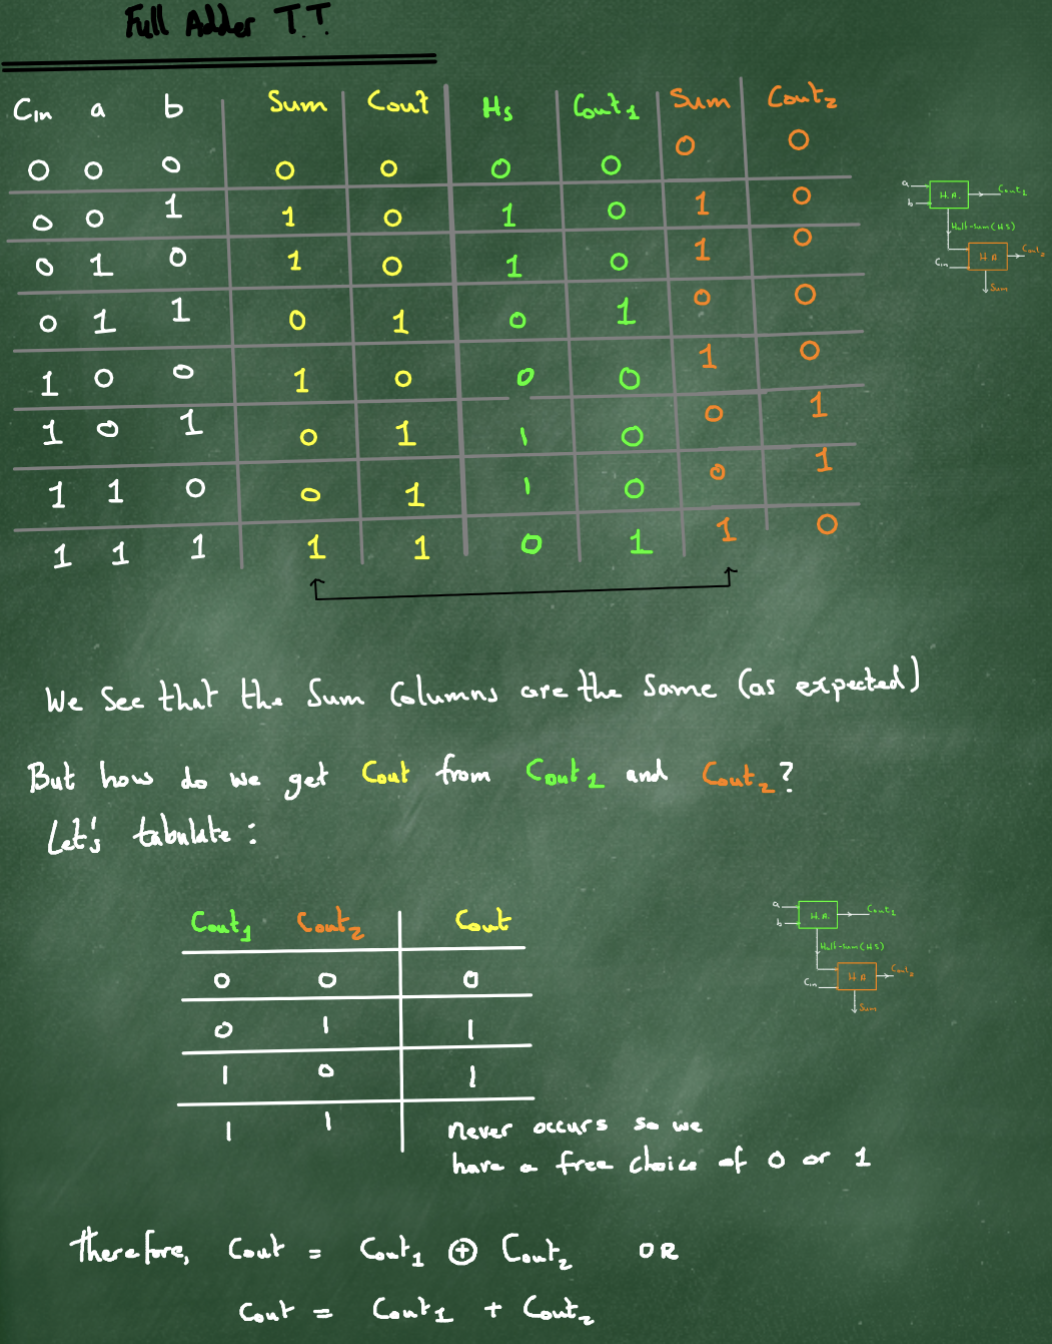 Full Adder T.T
Cin a b Sum Cout Hs Cout1 Sum Cout2
0 0 0 0 0 0 0 0 0
0 0 1 1 0 1 0 1 0
0 1 0 1 0 1 0 1 0
0 1 1 0 1 0 1 0 0
1 0 0 1 0 0 0 1 0
1 0 1 0 1 1 0 0 1
1 1 0 0 1 1 0 0 1
1 1 1 1 1 0 1 1 0
a
b
H.A.
Cout1
Half-sum (HS)
Cin
H A
Cout2
Sum
We See that the Sum Columns are the Same (as expected)
But how do we get Cout from Cout1 and Cout2?
Let's tabulate:
Cout1 Cout2 Cout
0 0 0
0 1 1
1 0 1
1 1 never occurs so we
have a free choice of 0 or 1
a
b
H.A.
Cout1
Half-sum (HS)
Cin
H A
Cout2
Sum
Therefore, Cout = Cout1 ⊕ Cout2 OR
Cout = Cout1 + Cout2